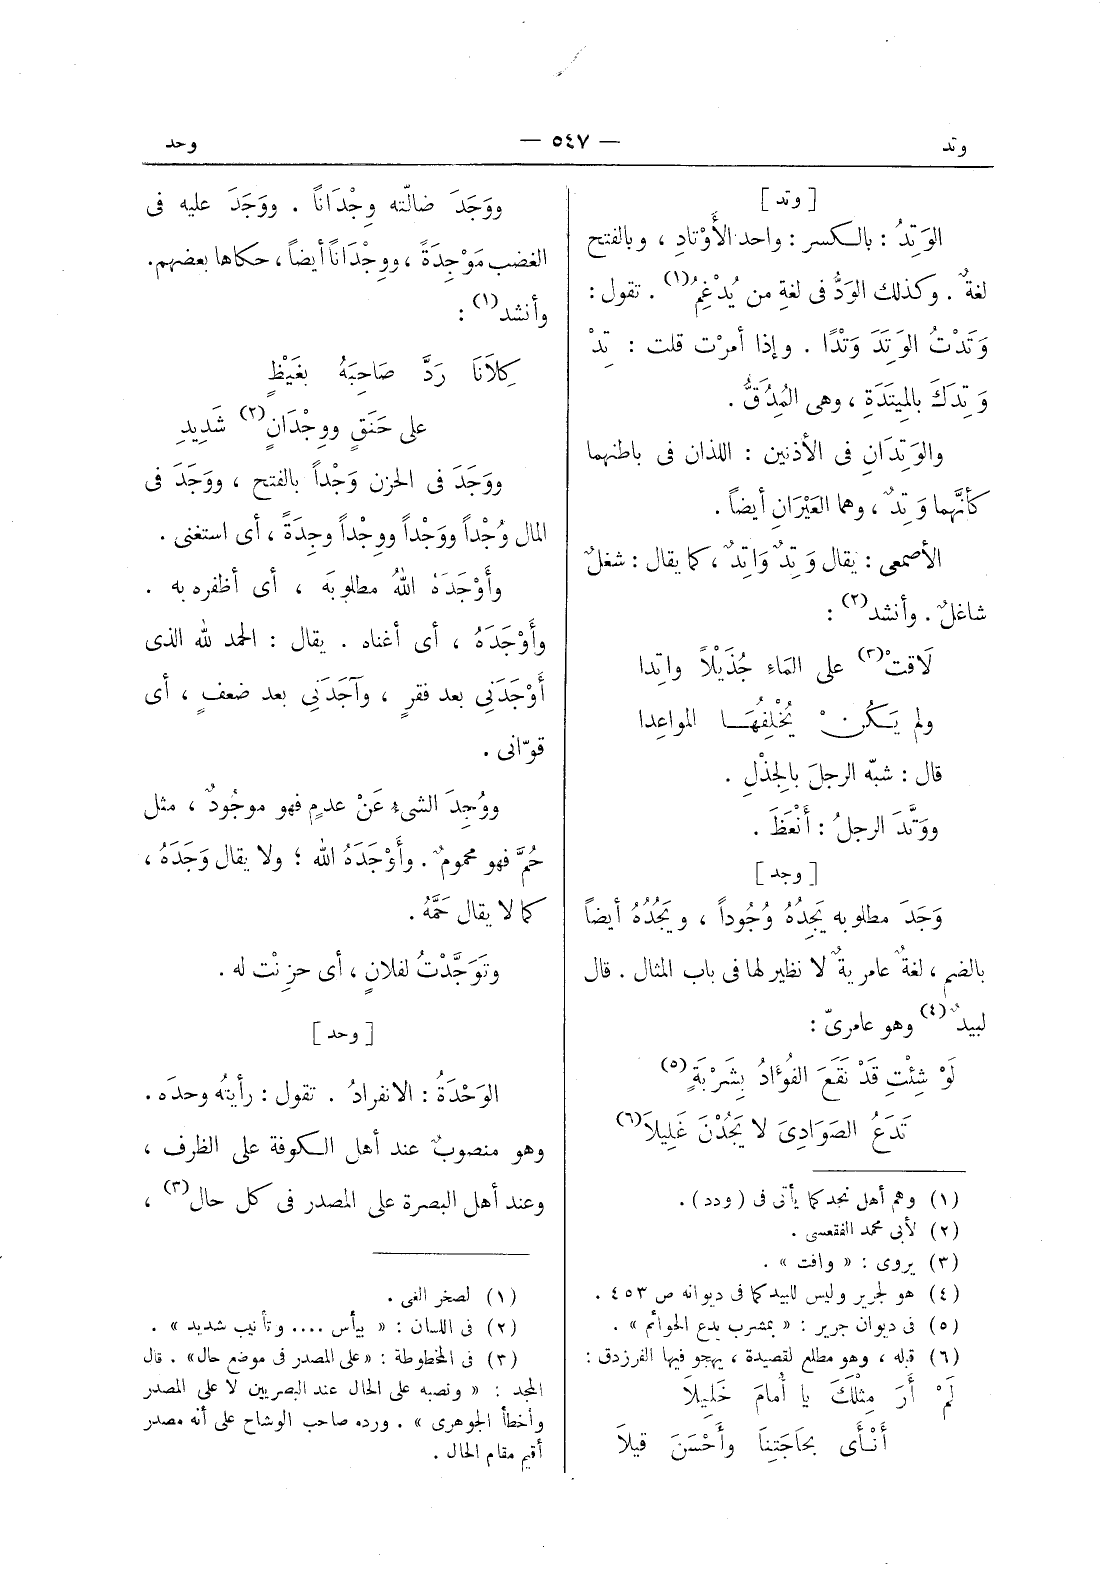 وتد
— ٥٤٧ —
وحد
[ وتد ]
الوَتِدُ : بالكسر : واحد الأَوْتادِ ، وبالفتح
لغةٌ . وكذلك الوَدُّ فى لغةِ من يُدْغِمُ(١) . تقول :
وَتَدْتُ الوَتِدَ وَتْدًا . وإذا أمرْت قلت : تِدْ
وَتِدَكَ بالمِيتَدَةِ ، وهى المُدُقُّ .
والوَتِدَانِ فى الأذنين : اللذان فى باطنهما
كأنَّهما وَتِدٌ ، وهما العَيْرَانِ أيضاً .
الأصمعى : يقال وَتِدٌ وَاتِدٌ ، كما يقال : شغلٌ
شاغلٌ . وأنشد(٢) :
لَاقتْ(٣) على المَاءِ جُذَيْلاً واتِدا
ولم يَكُنْ يُخْلِفُهَا المواعِدا
قال : شبّه الرجلَ بالجِذْلِ .
ووَتَّدَ الرجلُ : أَنْعَظَ .
[ وجد ]
وَجَدَ مطلوبه يَجِدُهُ وُجُوداً ، ويَجُدُهُ أيضاً
بالضم ، لغةٌ عامريةٌ لا نظير لها فى باب المثال . قال
لبيدٌ(٤) وهو عامرىّ :
لَوْ شِئْتِ قَدْ نَقَعَ الفُؤَادُ بِشَرْبَةٍ(٥)
تَدَعُ الصَوَادِىَ لا يَجُدْنَ غَلِيلاَ(٦)
(١) وهم أهل نجد كما يأتى فى ( ودد ) .
(٢) لأبى محمد الفقعسى .
(٣) يروى : « وافت » .
(٤) هو لجرير وليس للبيد كما فى ديوانه ص ٤٥٣ .
(٥) فى ديوان جرير : « بمشرب يدع الحوائم » .
(٦) قبله ، وهو مطلع لقصيدة ، يهجو فيها الفرزدق :
لَمْ أَرَ مِثْلَكَ يا أُمَامَ خَلِيلاَ
أَنْأَى بحَاجَتِنِاَ وأَحْسَنَ قيلاَ
ووَجَدَ ضالّته وِجْدَاناً . ووَجَدَ عليه فى
الغضب مَوْجِدَةً ، ووِجْدَاناً أيضاً ، حكاها بعضهم .
وأنشد(١) :
كِلَانَا رَدَّ صَاحِبَهُ بغَيْظٍ
على حَنَقٍ ووِجْدَانٍ(٢) شَدِيدِ
ووَجَدَ فى الحزن وَجْداً بالفتح ، ووَجَدَ فى
المال وُجْداً ووَجْداً ووِجْداً وجِدَةً ، أى استغنى .
وأَوْجَدَهُ اللهُ مطلوبَه ، أى أظفره به .
وأَوْجَدَهُ ، أى أغناه . يقال : الحمد لله الذى
أَوْجَدَنِى بعد فقرٍ ، وآجَدَنِى بعد ضعفٍ ، أى
قوّانى .
ووُجِدَ الشىء عَنْ عدمٍ فهو موجُودٌ ، مثل
حُمَّ فهو محمومٌ . وأَوْجَدَهُ الله ؛ ولا يقال وَجَدَهُ ،
كما لا يقال حَمَّهُ .
وتَوَجَّدْتُ لفلانٍ ، أى حزِنْت له .
[ وحد ]
الوَحْدَةُ : الانفرادُ . تقول : رأيتُه وحدَه .
وهو منصوبٌ عند أهل الكوفة على الظرف ،
وعند أهل البصرة على المصدر فى كل حال(٣) ،
(١) لصخر الغى .
(٢) فى اللسان : « بيأس .... وتأنيب شديد » .
(٣) فى المخطوطة : «على المصدر فى موضع حال» . قال
المجد : « ونصبه على الحال عند البصريين لا على المصدر
وأخطأ الجوهرى » . ورده صاحب الوشاح على أنه مصدر
أقيم مقام الحال .